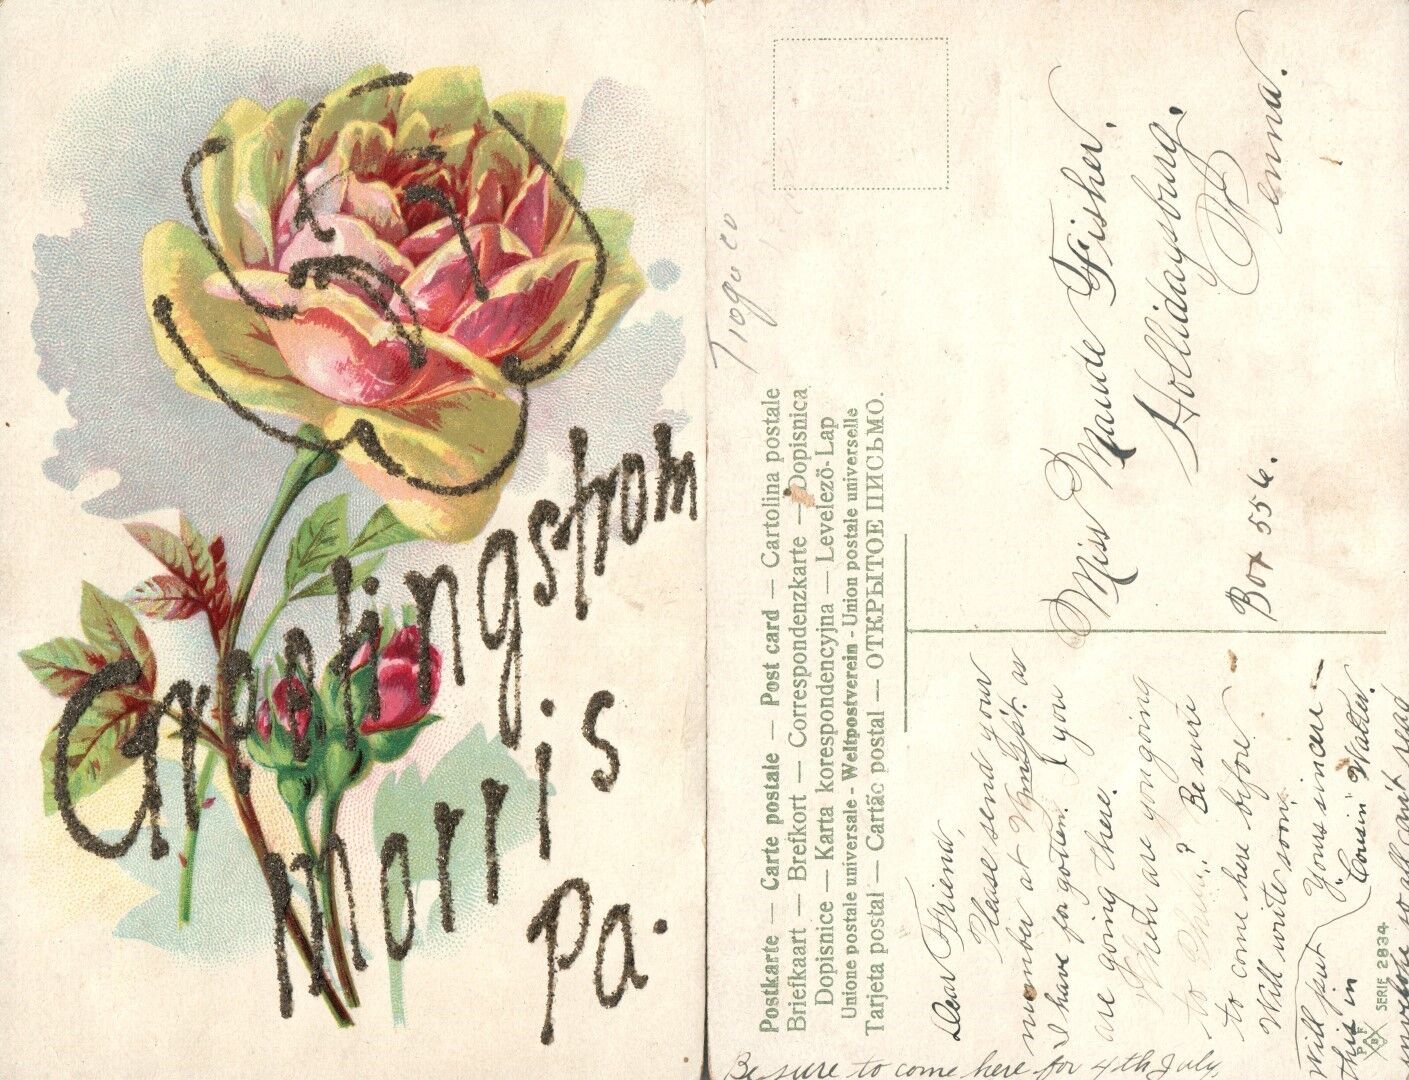 Greetings from
Morris
Pa.
Tioga co
Postkarte — Carte postale — Post card — Cartolina postale
Briefkaart — Brefkort — Correspondenzkarte — Dopisnica
Dopisnice — Karta korespondencyjna — Levelező-Lap
Unione postale universale - Weltpostverein - Union postale universelle
Tarjeta postal — Cartão postal — ОТКРЫТОЕ ПИСЬМО.
Miss Maude Fisher.
Hollidaysburg.
Penna.
Box 556.
Dear Friend,
Please send your
number at as
I have forgotten. If you
are going there.
When are you going
to ? Be sure
to come here before
Will write soon.
Yours sincere —
"Cousin" Walter.
Will just
this in
envelope so all can't read
Be sure to come here for 4th July.
SERIE 2834